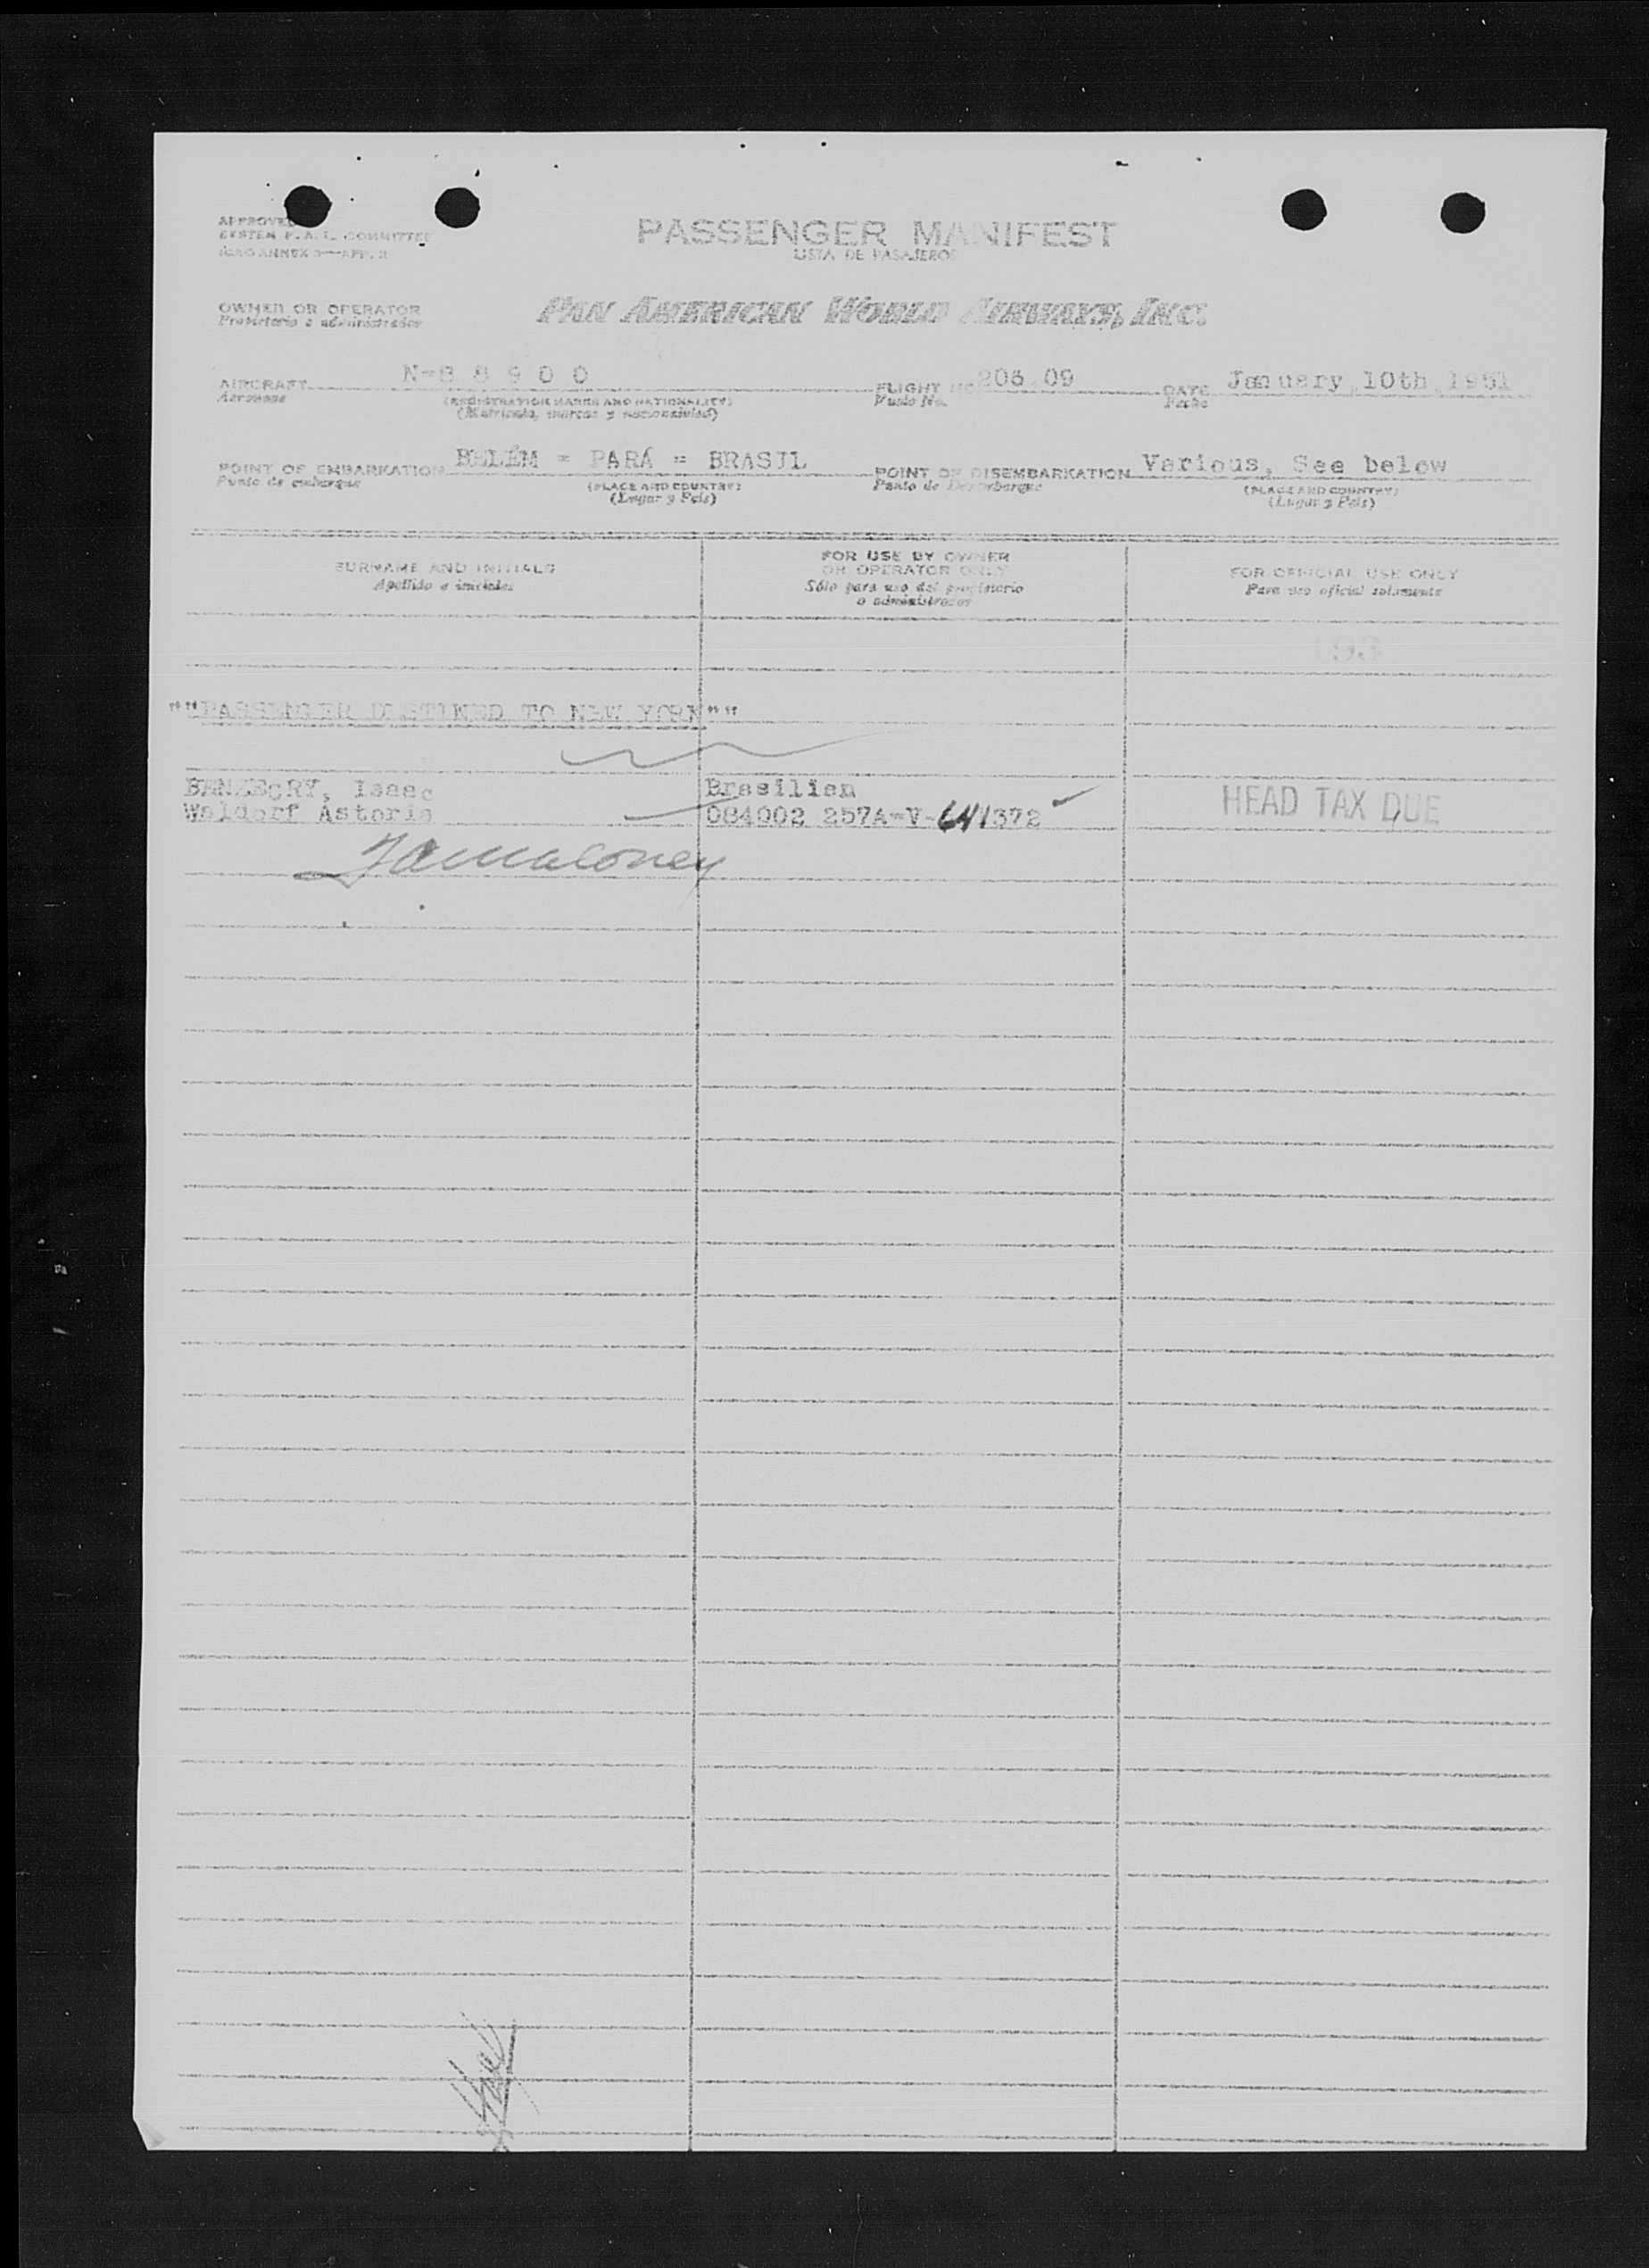 APPROVED
SYSTEM F.A.L. COMMITTEE
ICAO ANNEX 9—APP. 2
PASSENGER MANIFEST
LISTA DE PASAJEROS
OWNER OR OPERATOR
Propietario o administrador
PAN AMERICAN WORLD AIRWAYS, INC.
AIRCRAFT N-8 8 9 0 0 FLIGHT No. 206 09 DATE January 10th 1951
Aeronave (REGISTRATION MARKS AND NATIONALITY) Vuelo No. Fecha
(Matrícula, marcas y nacionalidad)
POINT OF EMBARKATION BELÉM = PARÁ = BRASIL POINT OF DISEMBARKATION Various, See below
Punto de embarque (PLACE AND COUNTRY) Punto de Desembarque (PLACE AND COUNTRY)
(Lugar y País) (Lugar y País)
SURNAME AND INITIALS
Apellido e iniciales
FOR USE BY OWNER
OR OPERATOR ONLY
Sólo para uso del propietario
o administrador
FOR OFFICIAL USE ONLY
Para uso oficial solamente
""PASSENGER DESTINED TO NEW YORK""
Isaac Brasilian
Waldorf Astoria 084002 257A=V-641372
HEAD TAX DUE